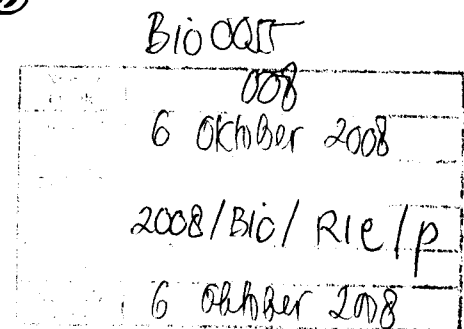 008
6 Oktober 2008
2008/Bio/Rie/p
6 Oktober 2008